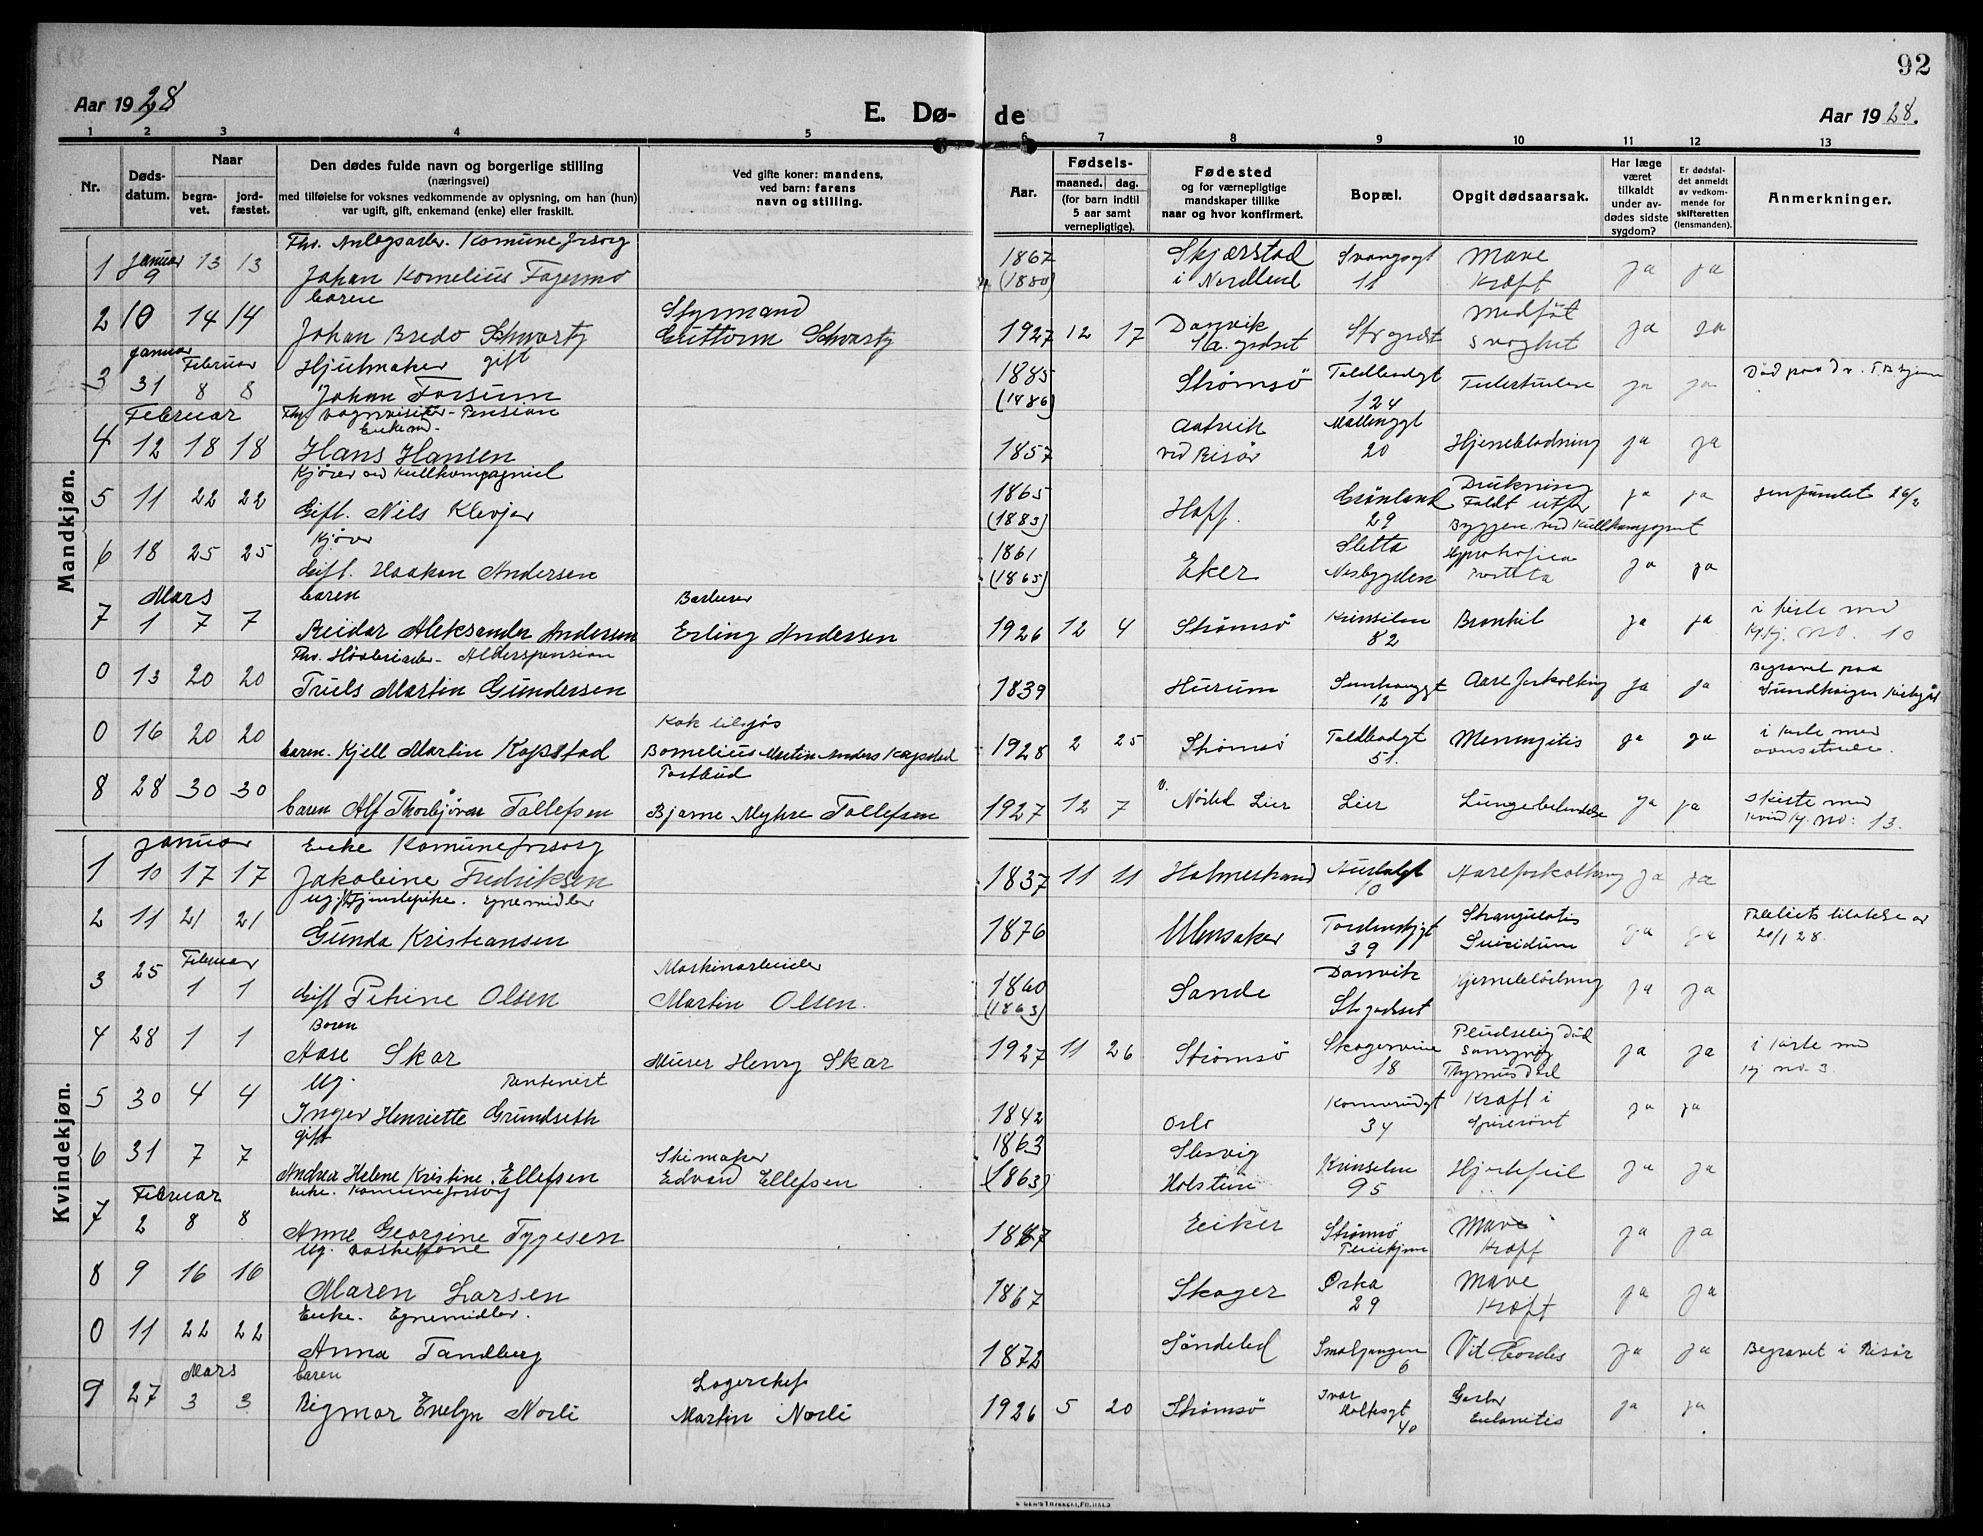 92
Aar 1928
E. Dø- de
Aar 1928.
1 2 3 4 5 6 7 8 9 10 11 12 13
Nr.
Døds-
datum.
Naar
begra-
vet.
jord-
fæstet.
Den dødes fulde navn og borgerlige stilling
(næringsvei)
med tilføielse for voksnes vedkommende av oplysning, om han (hun)
var ugift, gift, enkemand (enke) eller fraskilt.
Ved gifte koner: mandens,
ved barn: farens
navn og stilling.
Aar.
Fødsels-
maaned. dag.
(for barn indtil
5 aar samt
vernepligtige).
Fødested
og for værnepligtige
mandskaper tillike
naar og hvor konfirmert.
Bopæl.
Opgit dødsaarsak.
Har læge
været
tilkaldt
under av-
dødes sidste
sygdom?
Er dødsfal-
det anmeldt
av vedkom-
mende for
skifteretten
(lensmanden).
Anmerkninger.
Mandkjøn.
Fhv. Anlegsarb. Komuneforsorg
1 Januar 9 13 13 Johan Kornelius Fagermo 1867 (1880) Skjærstad i Nordland Svangsgt 11 Mave Kræft ja ja
Barn Styrmand
2 10 14 14 Johan Bredo Schwartz Guttorm Schwartz 1927 12 17 Danvik Str. gdset Str gdset Medføt svaghet ja ja
Januar Februar Hjulmaker gift
3 31 8 8 Johan Forsum 1885 (1886) Strømsø Toldbodgt 124 Tuberkulose ja ja
Februar Fhv. vognvisitør - Pension Enkem.
4 12 18 18 Hans Hansen 1857 ved Risør Møllenggt 20 Hjerneblødning ja ja
Kjører ved Kullkompagniet
5 11 22 22 Gift. Nils Klevjer 1865 (1883) Hoff. Grønland 29 Drukning Faldt utfor Bryggene ved Kullkompagniet ja ja gjenfundet 20/2
Kjører
6 18 25 25 Gift. Haakon Andersen 1861 (1865) Eker Sletta Nesbygden ja ja
Mars Barn Barberer
7 1 7 7 Reidar Aleksander Andersen Erling Andersen 1926 12 4 Strømsø 82 Bronkit ja ja i kiste med Kv.kj. No. 10
Alderspension
0 13 20 20 Truls Martin Gundersen 1839 Hurum Sundhauggt 12 Aareforkalkning ja ja Begravet paa Sundhaugen Kirkegård
Kok tilsjøs
0 16 20 20 Barn. Kjell Martin Kopstad Bornelius Martin Anders Kopstad 1928 2 25 Strømsø Toldbodgt 51. Meningitis ja ja i kiste med
Postbud
8 28 30 30 Barn Alf Thorbjørn Tollefsen Bjarne Myhre Tollefsen 1927 12 7 Lier Lier Lungebetendelse ja ja i kiste med Kvindkj. No: 13.
Kvindekjøn.
Januar Enke Komuneforsorg
1 10 17 17 Jakobine Fredriksen 1837 11 11 Holmestrand 10 Aareforkalkning ja ja
Ug. Tjenestepike. Egnemidler
2 11 21 21 Gunda Kristiansen 1876 Ulensaker Tordenskjgt 39 Strangulatio Suicidium ja ja Politiets tilatelse av 20/1 28.
Februar Maskinarbeider
3 25 1 1 Gift Petrine Olsen Martin Olsen. 1860 (1863) Sande Danvik St. gdset Hjerneblødning ja ja
Barn
4 28 1 1 Aase Skar Murer Henry Skar 1927 11 26 Strømsø Skogerveien 18 Pludselig Død Sansynlig Thymusdød ja ja i kiste med Kj no. 3
Ug. Rentenist
5 30 4 4 Inger Henriette Grundseth 1842 Oslo Konnerudgt 34 Kræft i Spiserøret ja ja
Gift Skimaker
6 31 7 7 Andrea Helene Kristine Ellefsen Edvard Ellefsen 1863 (1863) Slesvig Holstein 95 Hjertefeil ja ja
Februar Enke. Komuneforsorg
7 2 8 8 Anne Georgine Tygesen 1867 Eiker Strømsø Pleiehjem Mave Kræft ja ja
Ug. Vaskekone
8 9 16 16 Maren Larsen 1867 Skoger Orka 29 Mave Kræft ja ja
Enke. Egnemidler.
0 11 22 22 Anna Tandberg 1872 Søndeled Smalgangen 6 Vit. Cordis ja ja Begravet i Risør
Mars Barn Lagerchef
9 27 3 3 Rigmor Evelyn Norli Martin Norli 1926 5 20 Strømsø Ivar Holtsgt 40 ja ja